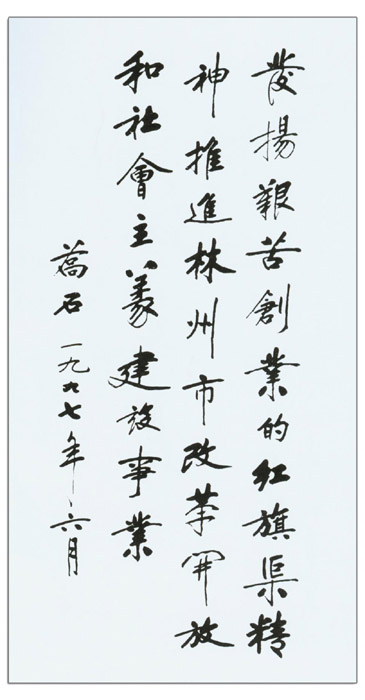 發揚艱苦創業的紅旗渠精
神推進林州市改革開放
和社會主義建設事業
喬石 一九九七年六月